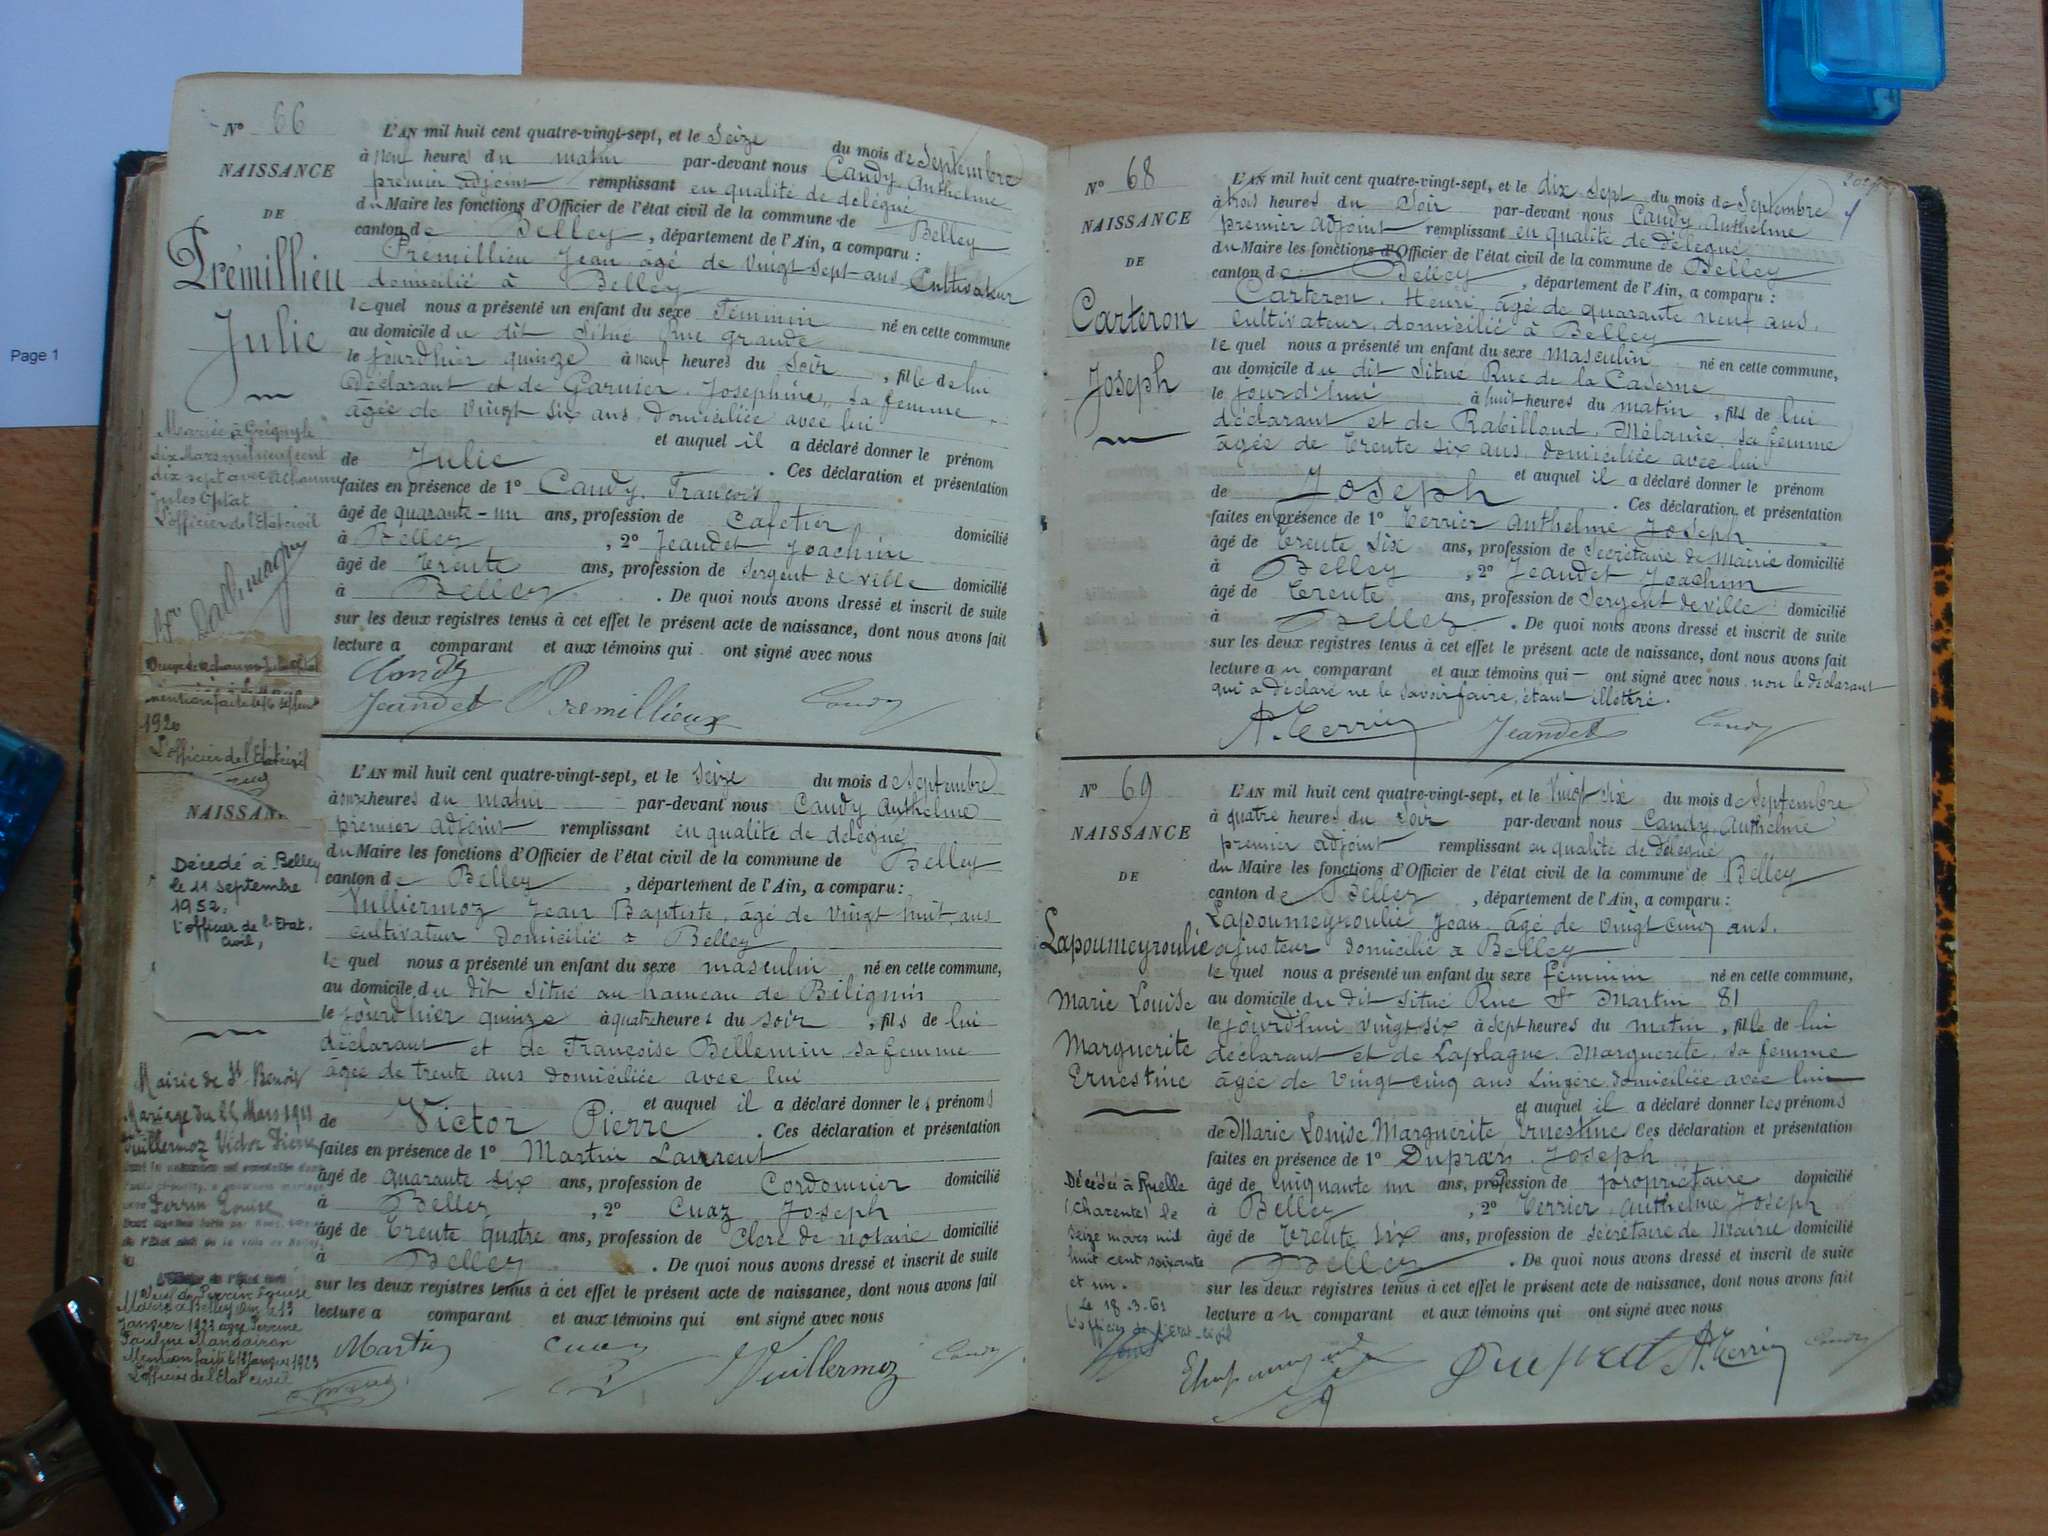 Page 1
N° 66
NAISSANCE
DE
Prémillieu
Julie
Mariée à Grignyle
dix Mars mil neuf cent
dix sept avec
Jules Optat
L'officier de l'Etat civil
mention faite le 16
1920
L'officier de l'Etat civil
L'AN mil huit cent quatre-vingt-sept, et le Seize du mois de Septembre
à neuf heures du matin par-devant nous Candy Anthelme
premier adjoint remplissant en qualité de délégué
du Maire les fonctions d'Officier de l'état civil de la commune de Belley
canton de Belley, département de l'Ain, a comparu :
Prémillieu Jean agé de vingt sept ans Cultivateur
domicilié à Belley
le quel nous a présenté un enfant du sexe Féminin né en cette commune
au domicile du dit Situé Rue grande
le jourd'hier quinze à neuf heures du Soir, fille de lui
Déclarant et de Garnier Joséphine, sa femme
âgée de vingt six ans domiciliée avec lui
et auquel il a déclaré donner le prénom
de Julie. Ces déclaration et présentation
faites en présence de 1° Candy François
âgé de quarante-un ans, profession de Cafetier domicilié
à Belley, 2° Jeandet Joachim
âgé de trente ans, profession de Sergent de ville domicilié
à Belley. De quoi nous avons dressé et inscrit de suite
sur les deux registres tenus à cet effet le présent acte de naissance, dont nous avons fait
lecture a comparant et aux témoins qui ont signé avec nous
Candy
Jeandet Premillieux Candy
NAISSAN
Décédé à Belley
le 11 septembre
1952,
l'officier de l'Etat.
Civil,
Mairie de St Benoit
Mariage du 25 Mars 1911
Vuillermoz Victor Pierre
Perrin Louise
Marié à Belley
Janvier 1923 avec
Mention faite le Janvier 1923
L'officier de l'Etat civil
L'AN mil huit cent quatre-vingt-sept, et le Seize du mois de Septembre
à onze heures du matin par-devant nous Candy Anthelme
premier adjoint remplissant en qualité de délégué
du Maire les fonctions d'Officier de l'état civil de la commune de Belley
canton de Belley, département de l'Ain, a comparu :
Vulliermoz Jean Baptiste, âgé de vingt huit ans
cultivateur domicilié à Belley
le quel nous a présenté un enfant du sexe masculin né en cette commune,
au domicile du dit situé au hameau de Bilignin
le jourd'hier quinze à quatre heures du soir, fils de lui
déclarant et de Françoise Bellemin sa femme
âgée de trente ans domiciliée avec lui
et auquel il a déclaré donner les prénoms
de Victor Pierre. Ces déclaration et présentation
faites en présence de 1° Martin Laurent
âgé de quarante six ans, profession de Cordonnier domicilié
à Belley, 2° Cuaz Joseph
âgé de trente quatre ans, profession de Clerc de notaire domicilié
à Belley. De quoi nous avons dressé et inscrit de suite
sur les deux registres tenus à cet effet le présent acte de naissance, dont nous avons fait
lecture a comparant et aux témoins qui ont signé avec nous
Martin Cuaz Vuillermoz Candy
N° 68
NAISSANCE
DE
Carteron
Joseph
L'AN mil huit cent quatre-vingt-sept, et le dix sept du mois de Septembre
à trois heures du Soir par-devant nous Candy Anthelme
premier Adjoint remplissant en qualité de Délégué
du Maire les fonctions d'Officier de l'état civil de la commune de Belley
canton de Belley, département de l'Ain, a comparu :
Carteron, Henri, âgé de quarante neuf ans,
Cultivateur, domicilié à Belley
le quel nous a présenté un enfant du sexe masculin né en cette commune,
au domicile du dit Situé Rue de la Caserne
le jourd'hui à huit heures du matin, fils de lui
déclarant et de Rabilloud, Mélanie, sa femme
âgée de trente six ans, domiciliée avec lui
et auquel il a déclaré donner le prénom
de Joseph. Ces déclaration et présentation
faites en présence de 1° Terrier Anthelme Joseph
âgé de trente six ans, profession de Secrétaire de Mairie domicilié
à Belley, 2° Jeandet Joachim
âgé de trente ans, profession de Sergent de ville domicilié
à Belley. De quoi nous avons dressé et inscrit de suite
sur les deux registres tenus à cet effet le présent acte de naissance, dont nous avons fait
lecture au comparant et aux témoins qui – ont signé avec nous non le déclarant
qui a déclaré ne le savoir faire, étant illettré.
A. Terrier Jeandet Candy
N° 69
NAISSANCE
DE
Lapoumeyroulie
Marie Louise
Marguerite
Ernestine
Décédée à Ruelle
(Charente) le
seize mars mil
huit cent soixante
et un.
Le 18.3.61
L'officier de l'Etat-civil
L'AN mil huit cent quatre-vingt-sept, et le Vingt six du mois de Septembre
à quatre heures du Soir par-devant nous Candy Anthelme
premier adjoint remplissant en qualité de délégué
du Maire les fonctions d'Officier de l'état civil de la commune de Belley
canton de Belley, département de l'Ain, a comparu :
Lapoumeyroulie Jean, âgé de vingt cinq ans.
ajusteur domicilié à Belley
le quel nous a présenté un enfant du sexe féminin né en cette commune,
au domicile du dit situé Rue St Martin 81
le jourd'hui vingt six à sept heures du matin, fille de lui
déclarant et de Laplagne, Marguerite, sa femme
âgée de vingt cinq ans Lingère domiciliée avec lui
et auquel il a déclaré donner les prénoms
de Marie Louise Marguerite Ernestine Ces déclaration et présentation
faites en présence de 1° Duprat, Joseph
âgé de cinquante un ans, profession de propriétaire domicilié
à Belley, 2° Terrier, Anthelme Joseph
âgé de trente six ans, profession de secrétaire de Mairie domicilié
à Belley. De quoi nous avons dressé et inscrit de suite
sur les deux registres tenus à cet effet le présent acte de naissance, dont nous avons fait
lecture au comparant et aux témoins qui ont signé avec nous
A. Terrier Candy